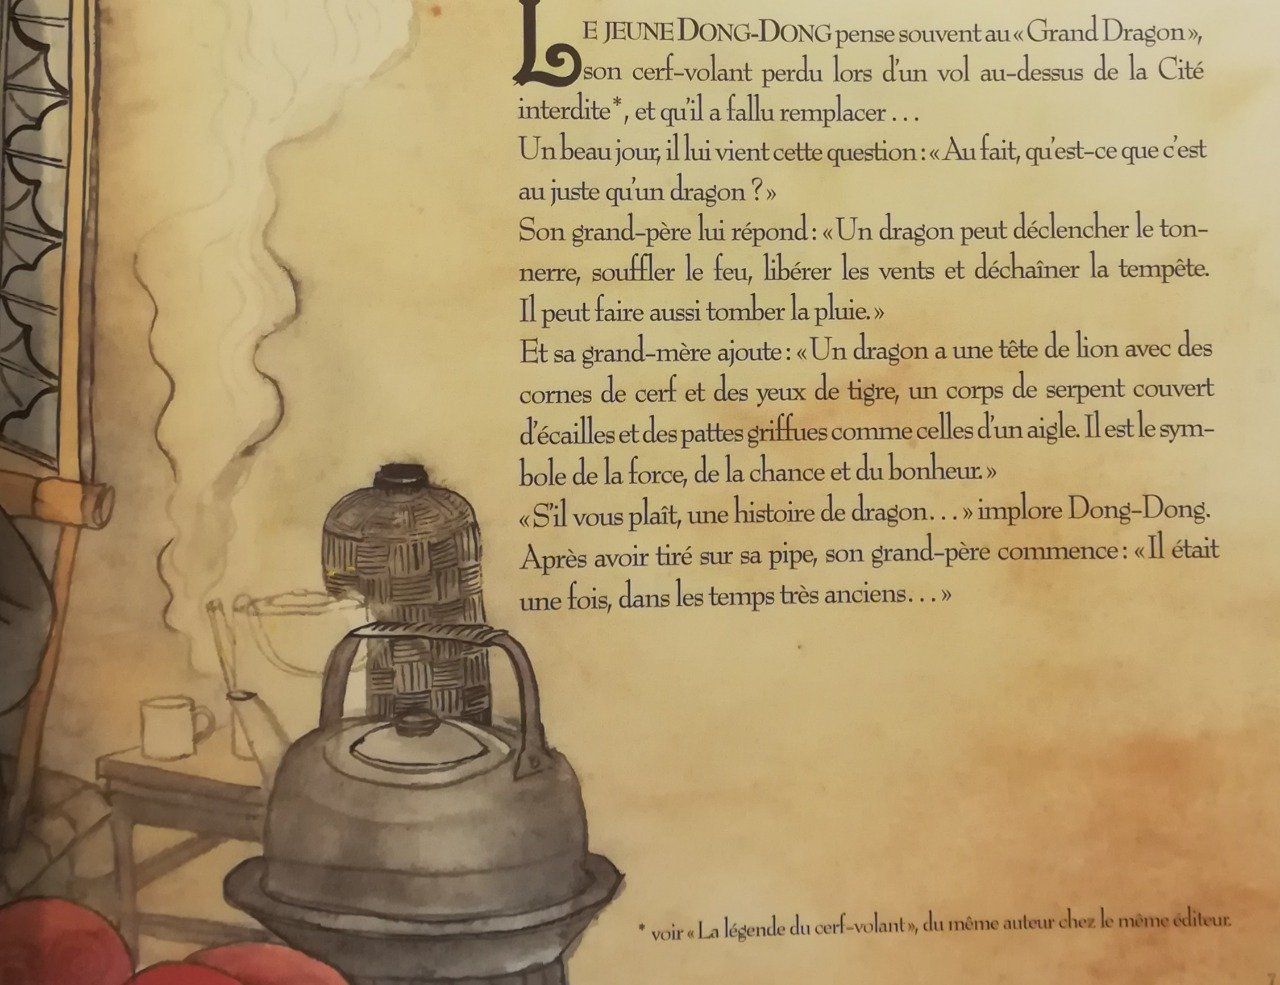 LE JEUNE DONG-DONG pense souvent au « Grand Dragon »,
son cerf-volant perdu lors d'un vol au-dessus de la Cité
interdite*, et qu'il a fallu remplacer . . .
Un beau jour, il lui vient cette question : « Au fait, qu'est-ce que c'est
au juste qu'un dragon ? »
Son grand-père lui répond : « Un dragon peut déclencher le ton-
nerre, souffler le feu, libérer les vents et déchaîner la tempête.
Il peut faire aussi tomber la pluie. »
Et sa grand-mère ajoute : « Un dragon a une tête de lion avec des
cornes de cerf et des yeux de tigre, un corps de serpent couvert
d'écailles et des pattes griffues comme celles d'un aigle. Il est le sym-
bole de la force, de la chance et du bonheur. »
« S'il vous plaît, une histoire de dragon. . . » implore Dong-Dong.
Après avoir tiré sur sa pipe, son grand-père commence : « Il était
une fois, dans les temps très anciens. . . »
* voir « La légende du cerf-volant », du même auteur chez le même éditeur.
7